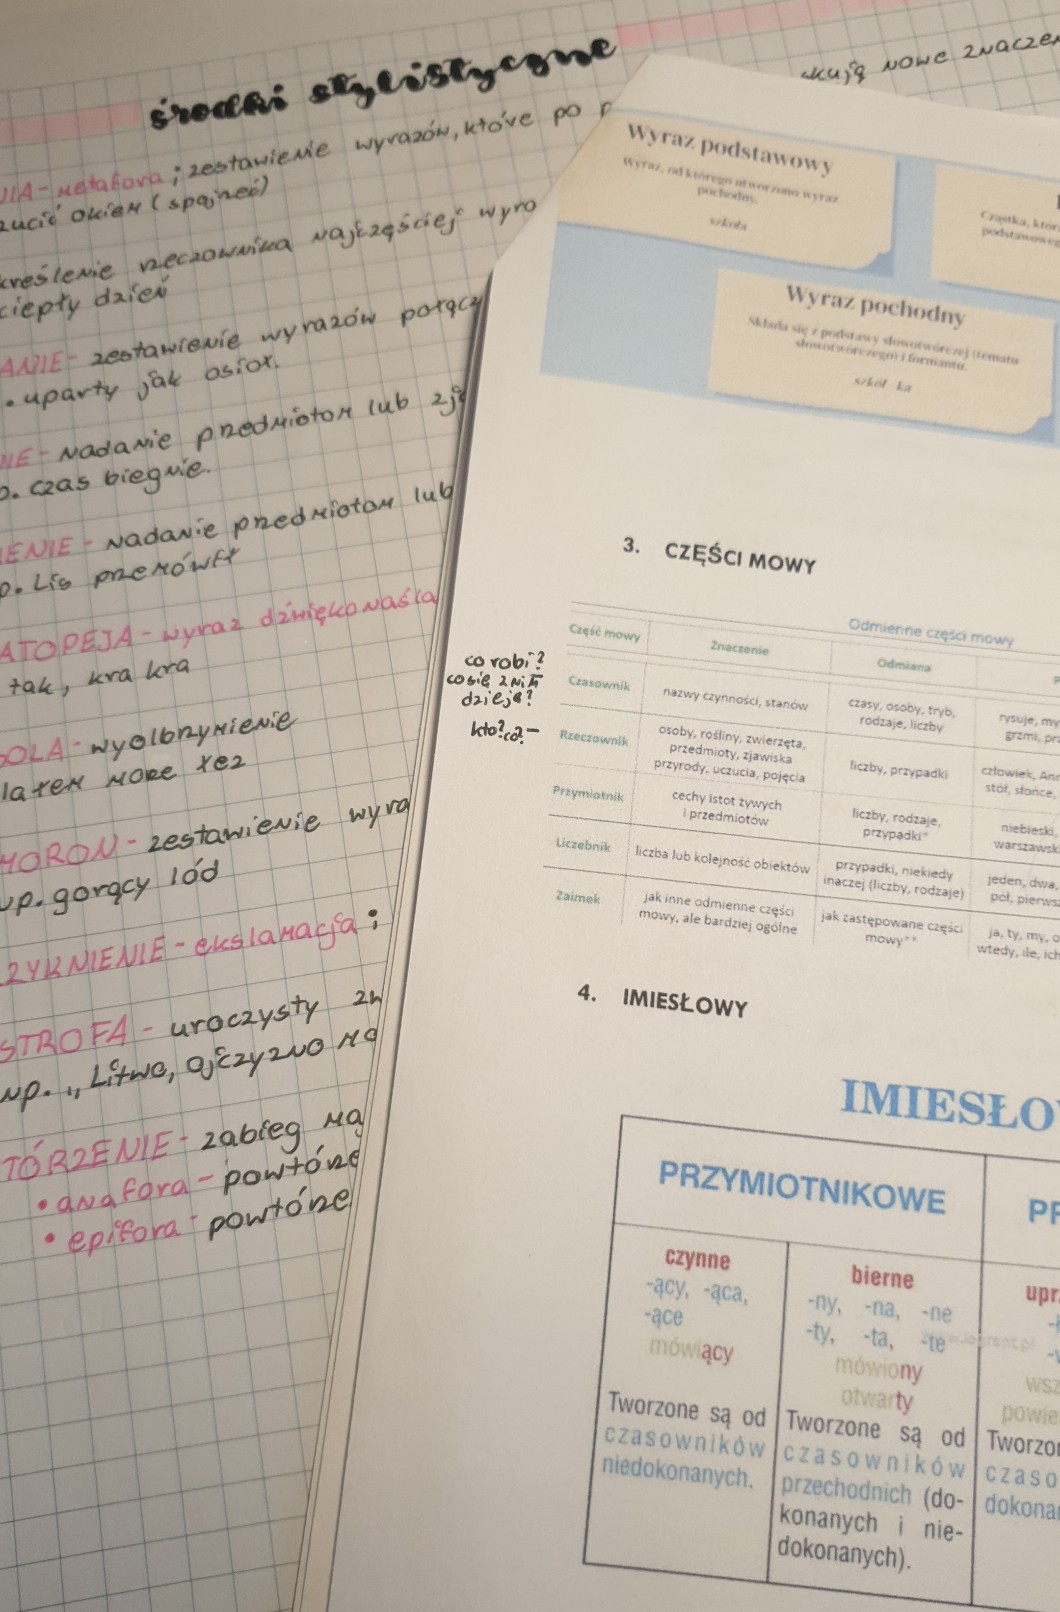 środki stylistyczne
NIA - metafora; zestawienie wyrazów, które po
zucić okiem (spojrzeć)
kreślenie rzeczownika najczęściej wyro
ciepły dzień
ANIE - zestawienie wyrazów połącz
. uparty jak osioł.
NIE - nadanie przedmiotom lub zj
p. czas biegnie.
IENIE - nadanie przedmiotom lub
p. Lis przemówił
ATOPEJA - wyraz dźwiękonaśla
tak, kra kra
BOLA - wyolbrzymienie
lałem morze łez
MORON - zestawienie wyra
np. gorący lód
ZYKNIENIE - ekslamacja;
STROFA - uroczysty zw
np. „Litwo, Ojczyzno mo
TÓRZENIE - zabieg ma
• anafora - powtórze
• epifora - powtórze
kują nowe znaczen
Wyraz podstawowy
Wyraz, od którego utworzono wyraz
pochodny.
szkoła
Cząstka, któr
podstawoweg
Wyraz pochodny
Składa się z podstawy słowotwórczej (tematu
słowotwórczego) i formantu.
szkół ka
3. CZĘŚCI MOWY
Odmienne części mowy
Część mowy Znaczenie Odmiana P
co robi?
co się z nim
dzieje?
Czasownik nazwy czynności, stanów czasy, osoby, tryb,
rodzaje, liczby rysuje, my
grzmi, prz
kto? co? -
Rzeczownik osoby, rośliny, zwierzęta,
przedmioty, zjawiska
przyrody, uczucia, pojęcia liczby, przypadki człowiek, Ann
stół, słońce,
Przymiotnik cechy istot żywych
i przedmiotów liczby, rodzaje,
przypadki* niebieski,
warszawsk
Liczebnik liczba lub kolejność obiektów przypadki, niekiedy
inaczej (liczby, rodzaje) jeden, dwa,
pół, pierwsz
Zaimek jak inne odmienne części
mowy, ale bardziej ogólne jak zastępowane części
mowy** ja, ty, my, o
wtedy, ile, ich
4. IMIESŁOWY
IMIESŁO
PRZYMIOTNIKOWE PR
czynne
-ący, -ąca,
-ące
mówiący
Tworzone są od
czasowników
niedokonanych.
bierne
-ny, -na, -ne
-ty, -ta, -te
mówiony
otwarty
Tworzone są od
czasowników
przechodnich (do-
konanych i nie-
dokonanych).
uprz
wsz
powie
Tworzon
czaso
dokona